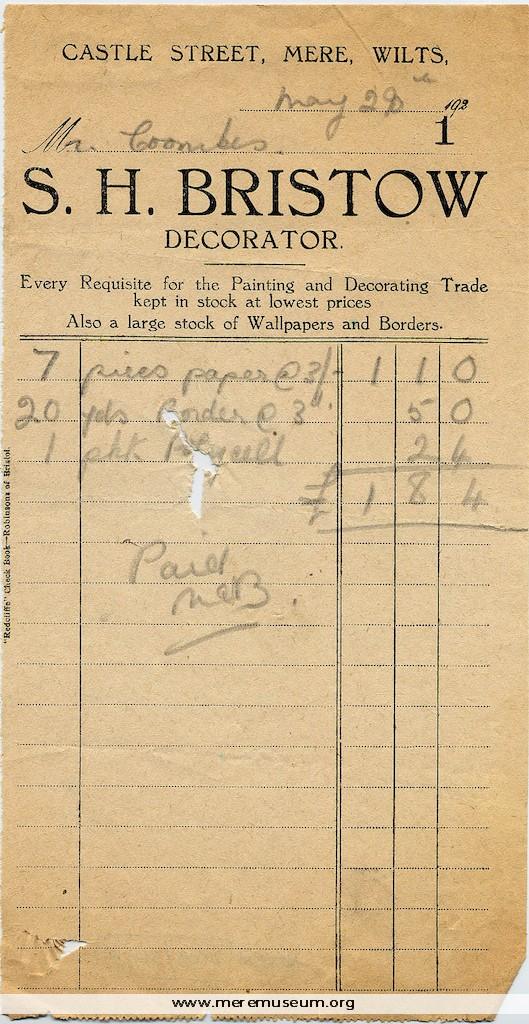 CASTLE STREET, MERE, WILTS,
May 28th 192
1
Mr. Coombes.
S. H. BRISTOW
DECORATOR.
Every Requisite for the Painting and Decorating Trade
kept in stock at lowest prices
Also a large stock of Wallpapers and Borders.
7 pieces paper @ 3/- 1 1 0
20 yds Border @ 3". 5 0
1 pkt 2 4
£ 1 8 4
Paid
"Redcliffe" Check Book—Robinsons of Bristol.
www.meremuseum.org